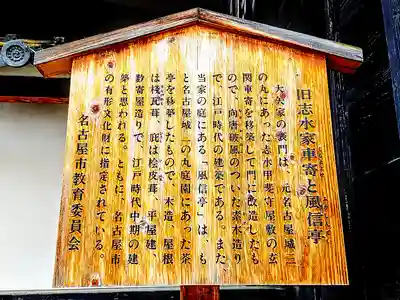 旧志水家車寄と風信亭
大矢家の表門は、元名古屋城三
の丸にあった志水甲斐守屋敷の玄
関車寄を移築して門に改造したも
ので、向唐破風のついた素木造り
で、江戸時代の建築である。また、
当家の庭にある「風信亭」は、も
と名古屋城二の丸庭園にあった茶
亭を移築したもので、木造、屋根
は桟瓦葺、庇は桧皮葺、平屋建、
数寄屋造りで、江戸時代中期の建
築と思われる。ともに、名古屋市
の有形文化財に指定されている。
名古屋市教育委員会